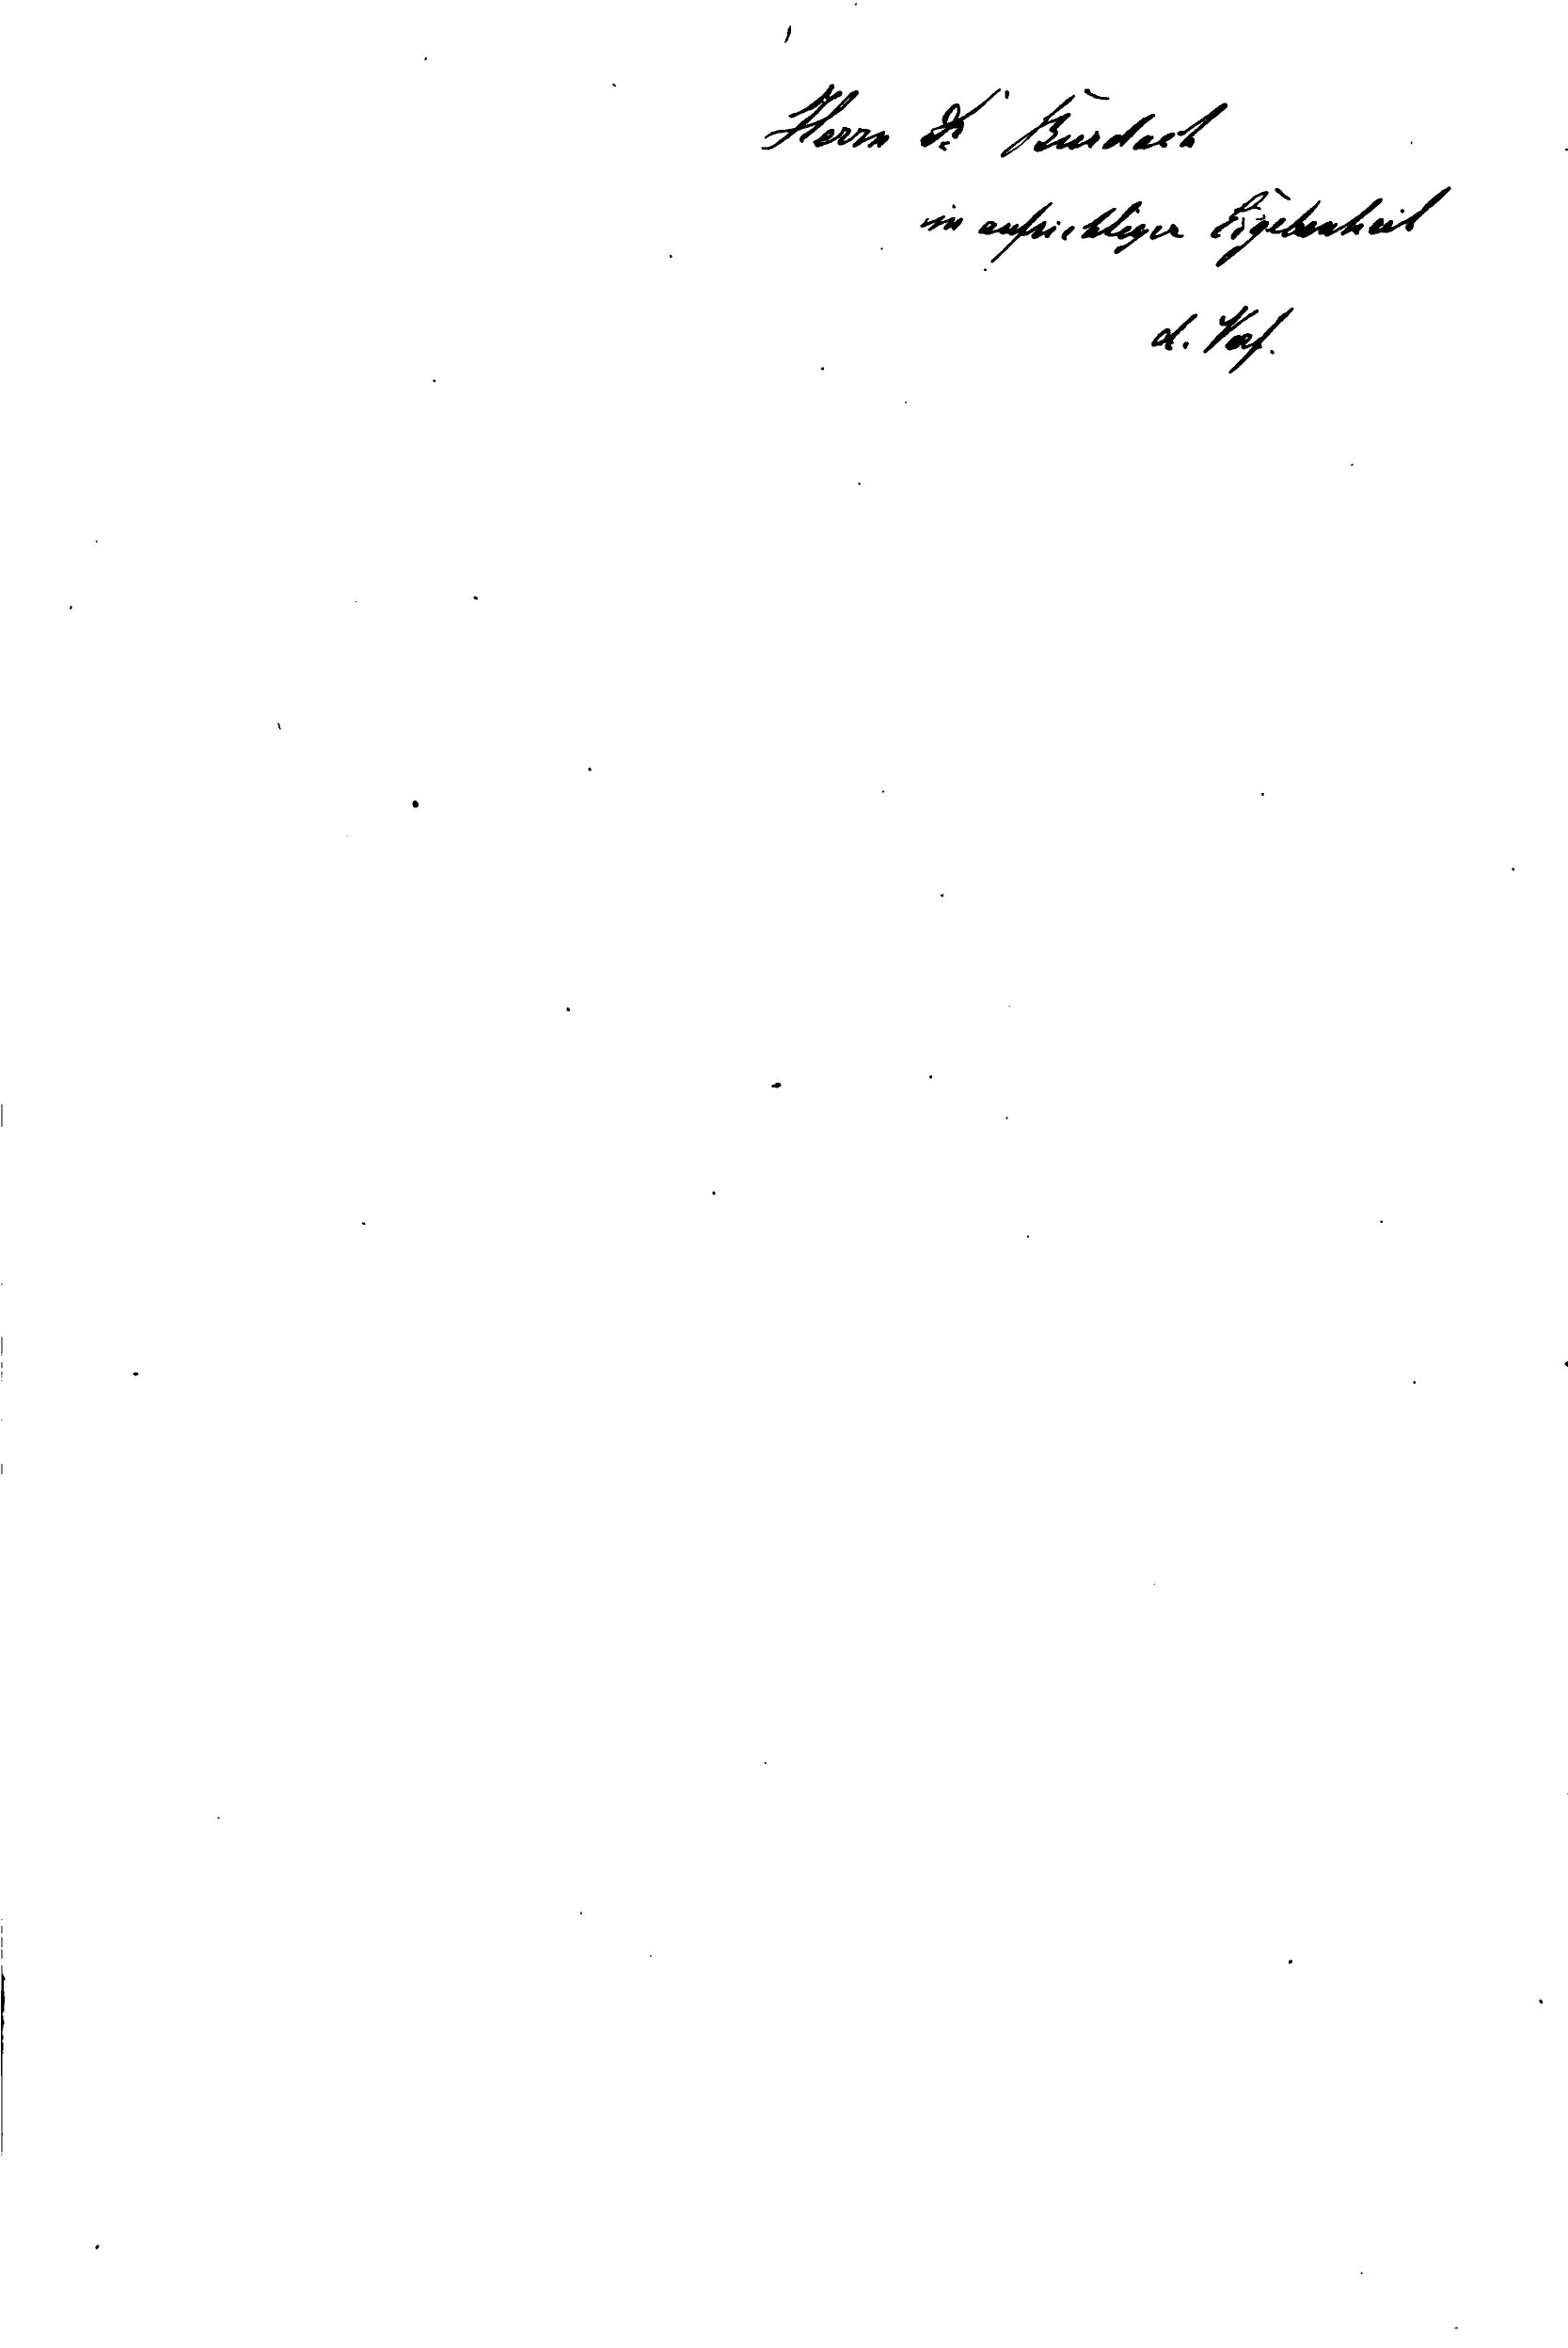 Herrn Dr Burdach
in aufrichtiger Ergebenheit
d. Verf.